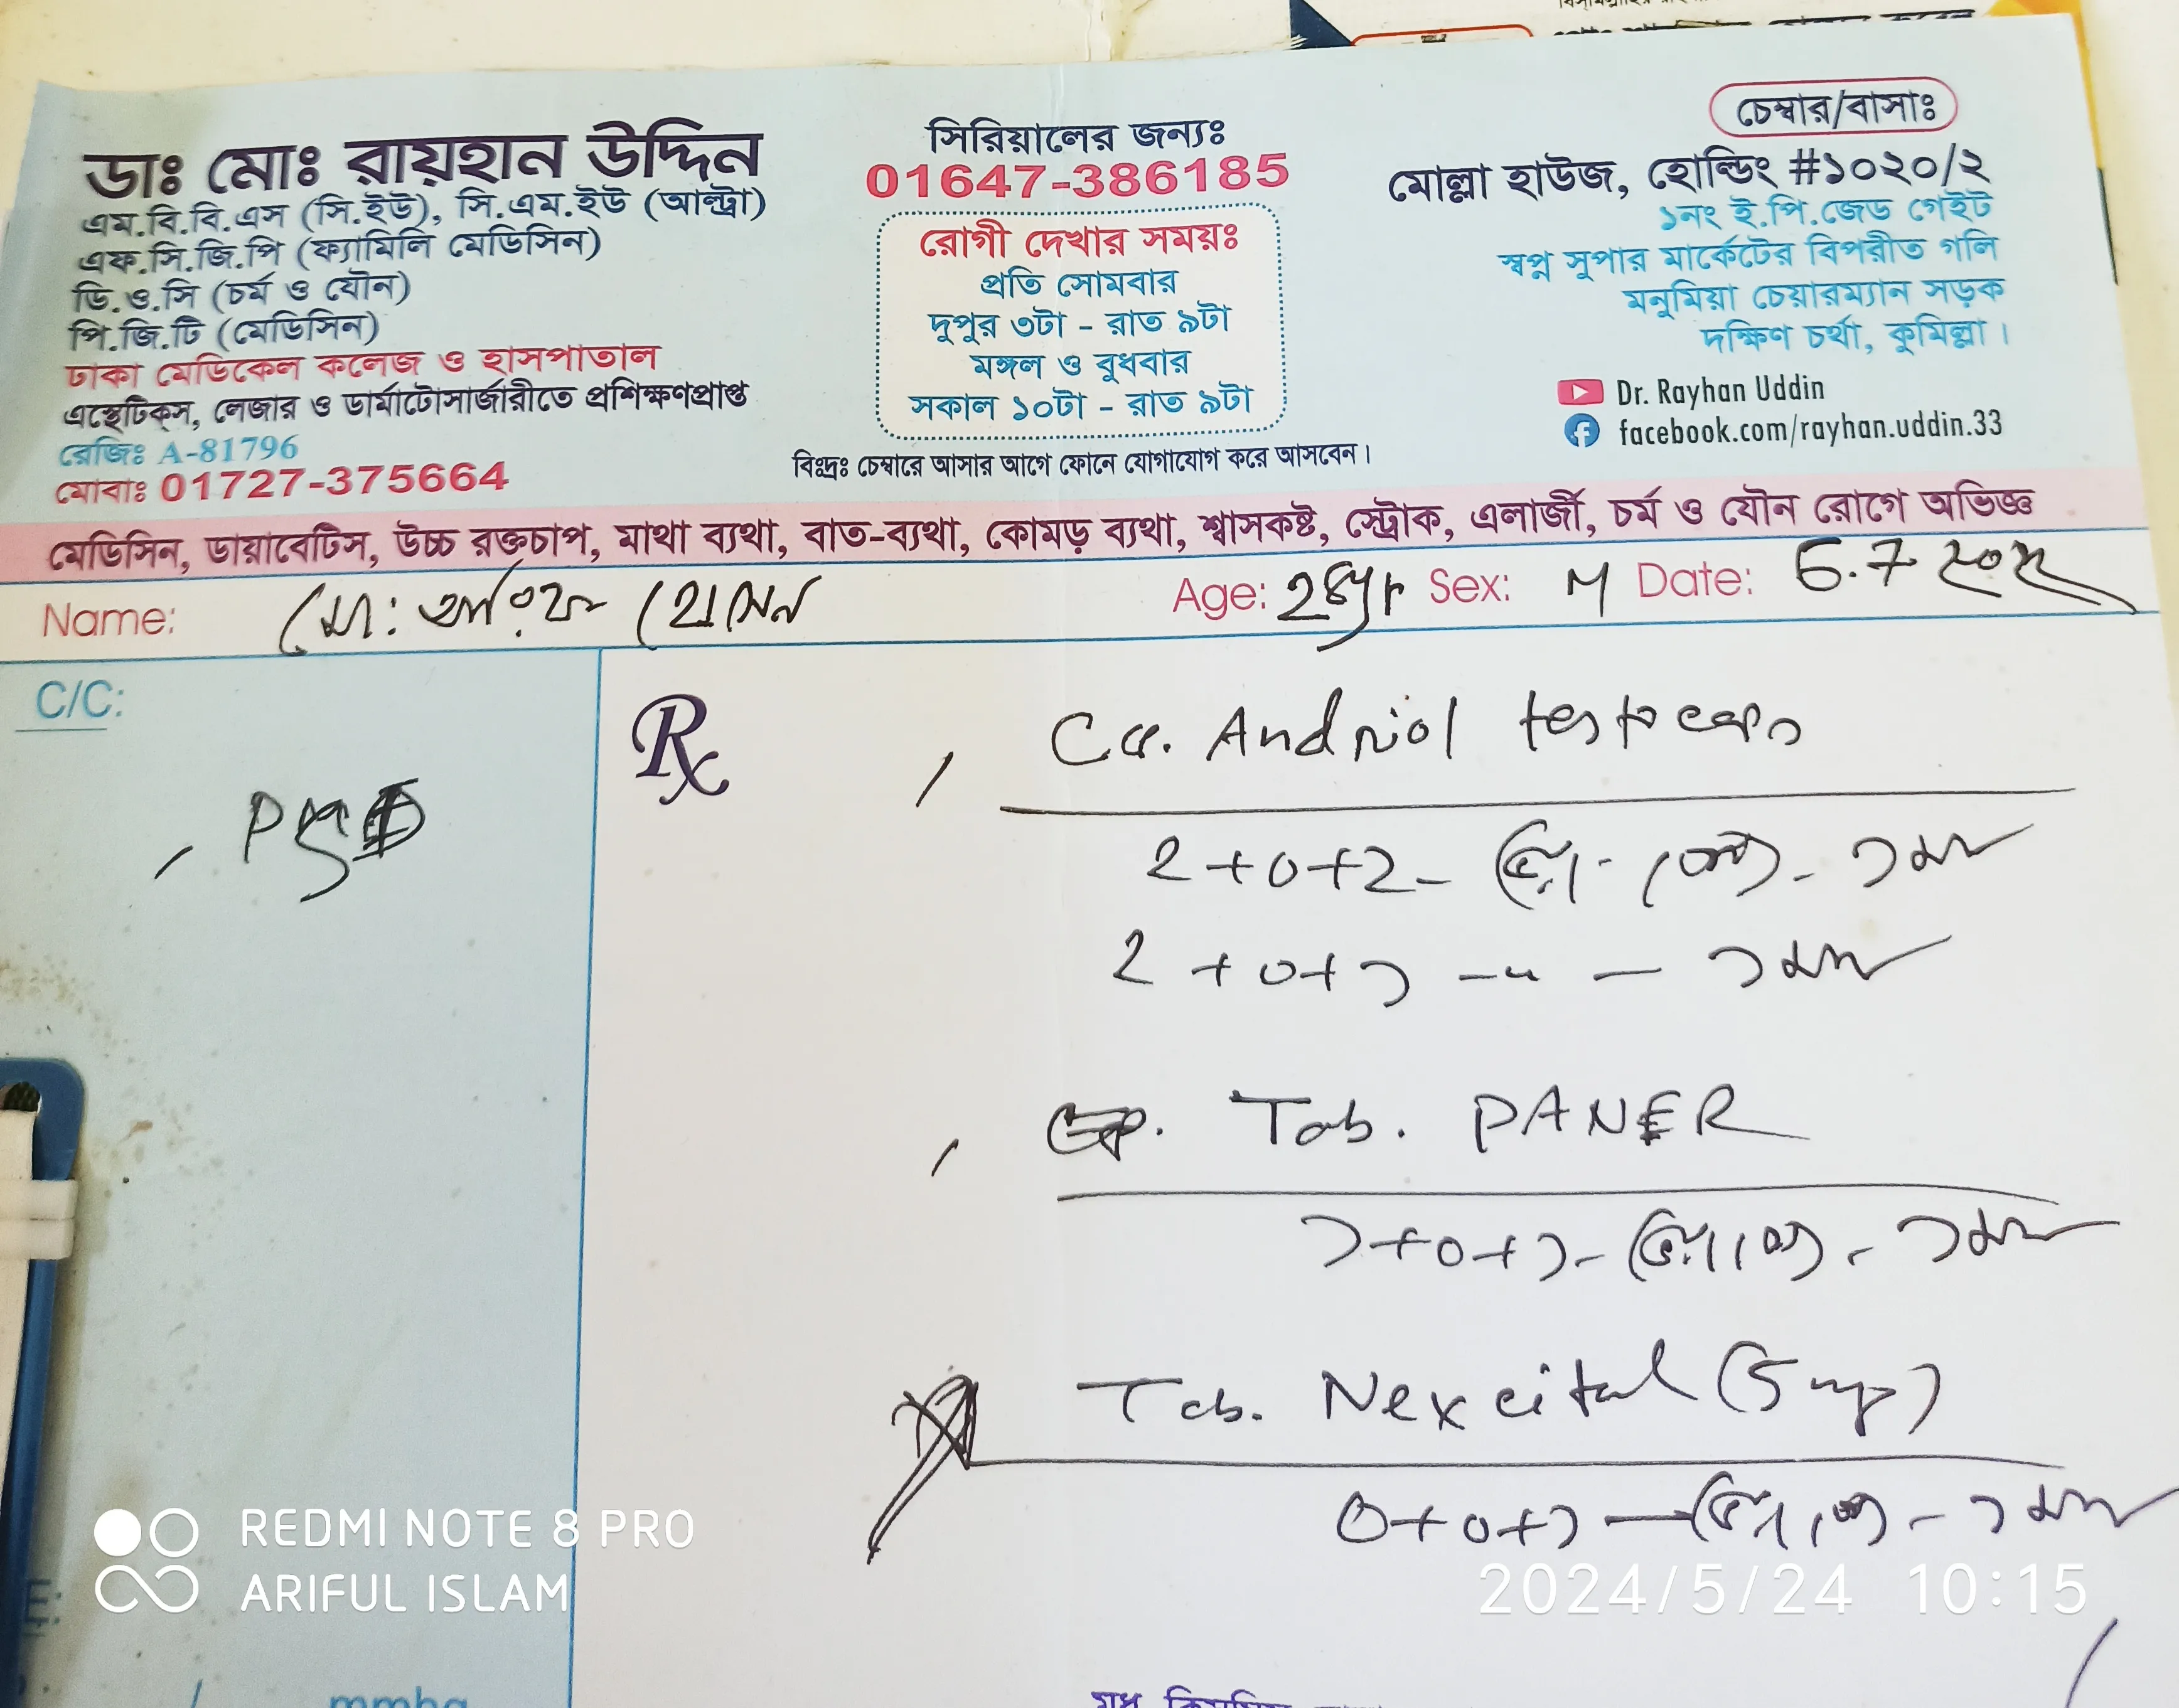 ডাঃ মোঃ রায়হান উদ্দিন
এম.বি.বি.এস (সি.ইউ), সি.এম.ইউ (আল্ট্রা)
এফ.সি.জি.পি (ফ্যামিলি মেডিসিন)
ডি.ও.সি (চর্ম ও যৌন)
পি.জি.টি (মেডিসিন)
ঢাকা মেডিকেল কলেজ ও হাসপাতাল
এস্থেটিক্স, লেজার ও ডার্মাটোসার্জারীতে প্রশিক্ষণপ্রাপ্ত
রেজিঃ A-81796
মোবাঃ 01727-375664
সিরিয়ালের জন্যঃ
01647-386185
রোগী দেখার সময়ঃ
প্রতি সোমবার
দুপুর ৩টা - রাত ৯টা
মঙ্গল ও বুধবার
সকাল ১০টা - রাত ৯টা
বিঃদ্রঃ চেম্বারে আসার আগে ফোনে যোগাযোগ করে আসবেন।
চেম্বার/বাসাঃ
মোল্লা হাউজ, হোল্ডিং #১০২০/২
১নং ই.পি.জেড গেইট
স্বপ্ন সুপার মার্কেটের বিপরীত গলি
মনুমিয়া চেয়ারম্যান সড়ক
দক্ষিণ চর্থা, কুমিল্লা।
Dr. Rayhan Uddin
facebook.com/rayhan.uddin.33
মেডিসিন, ডায়াবেটিস, উচ্চ রক্তচাপ, মাথা ব্যথা, বাত-ব্যথা, কোমড় ব্যথা, শ্বাসকষ্ট, স্ট্রোক, এলার্জী, চর্ম ও যৌন রোগে অভিজ্ঞ
Name: মো: হোসেন Age: Sex: M Date:
C/C:
Rx
Andriol testocaps
2+0+2-
2+0+১
Tab. PANER
১+0+১-
Tab. Nexcital (5 mg)
0+0+১
REDMI NOTE 8 PRO
ARIFUL ISLAM
2024/5/24 10:15
mmhg